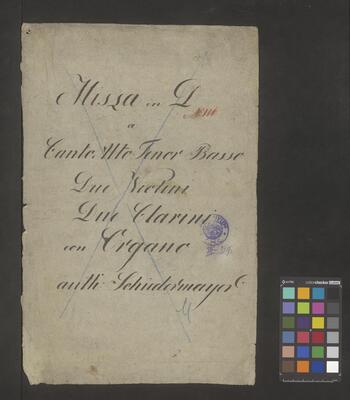 Missa in D
a
Canto Alto Tenor Basso
Due Violini
Due Clarini
con Organo
auth: Schiedermayer